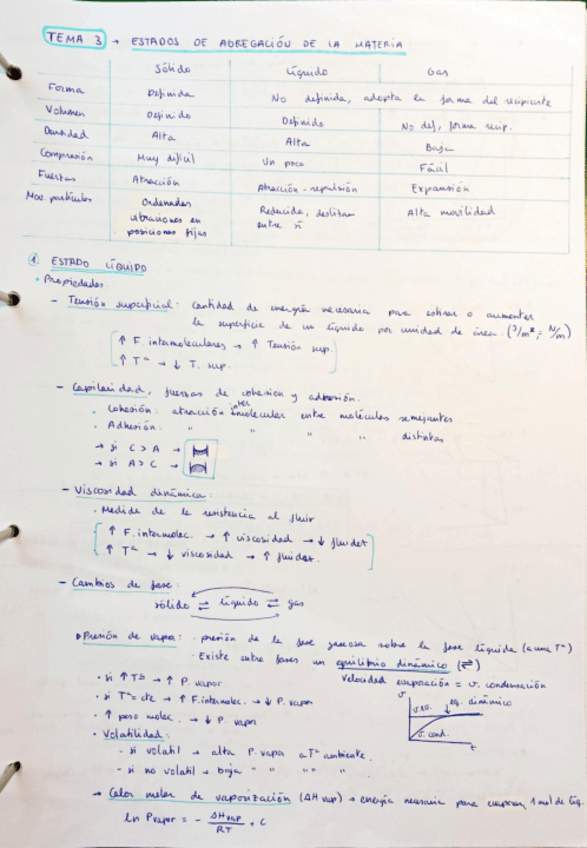 TEMA 3 → ESTADOS DE AGREGACIÓN DE LA MATERIA
Sólido Líquido Gas
Forma Definida No definida, adopta la forma del recipiente
Volumen Definido Definido No def, forma recip.
Densidad Alta Alta Baja
Compresión Muy difícil Un poco Fácil
Fuerzas Atracción Atracción - repulsión Expansión
Mov. partículas Ordenadas vibraciones en posiciones fijas Reducida, deslizan entre sí Alta movilidad
① ESTADO LÍQUIDO
• Propiedades:
- Tensión superficial: Cantidad de energía necesaria para estirar o aumentar
la superficie de un líquido por unidad de área. (J/m² = N/m)
↑ F. intermoleculares → ↑ Tensión sup.
↑ Tª → ↓ T. sup.
- Capilaridad, fuerzas de cohesion y adhesión.
• Cohesión: atracción intermolecular entre moléculas semejantes
• Adhesión: " " " " distintas
→ si C > A →
→ si A > C →
- Viscosidad dinámica:
• Medida de la resistencia al fluir
↑ F. intermolec. → ↑ viscosidad → ↓ fluidez
↑ Tª → ↓ viscosidad → ↑ fluidez.
- Cambios de fase:
sólido ⇌ líquido ⇌ gas
Presión de vapor: • presión de la fase gaseosa sobre la fase líquida (a una Tª)
• Existe entre fases un equilibrio dinámico (⇌)
Velocidad evaporación = v. condensación
• si ↑ Tª → ↑ P. vapor
• si Tª = cte → ↑ F. intermolec. → ↓ P. vapor
• ↑ peso molec. → ↓ P. vapor
v
v. ev.
eq. dinámico
v. cond.
t
• Volatilidad:
- si volatil → alta P. vapor a Tª ambiente.
- si no volatil → baja " " " "
→ Calor molar de vaporización (ΔH vap) → energía necesaria para evaporar 1 mol de líq.
ln Pvapor = - ΔHvap/RT + C